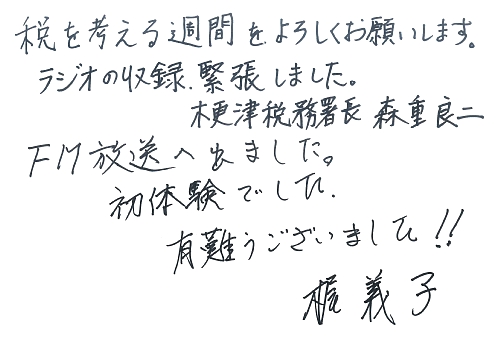 税を考える週間をよろしくお願いします。
ラジオの収録、緊張しました。
木更津税務署長 森重良二
FM放送へ出ました。
初体験でした.
有難うございました!!
梶義子